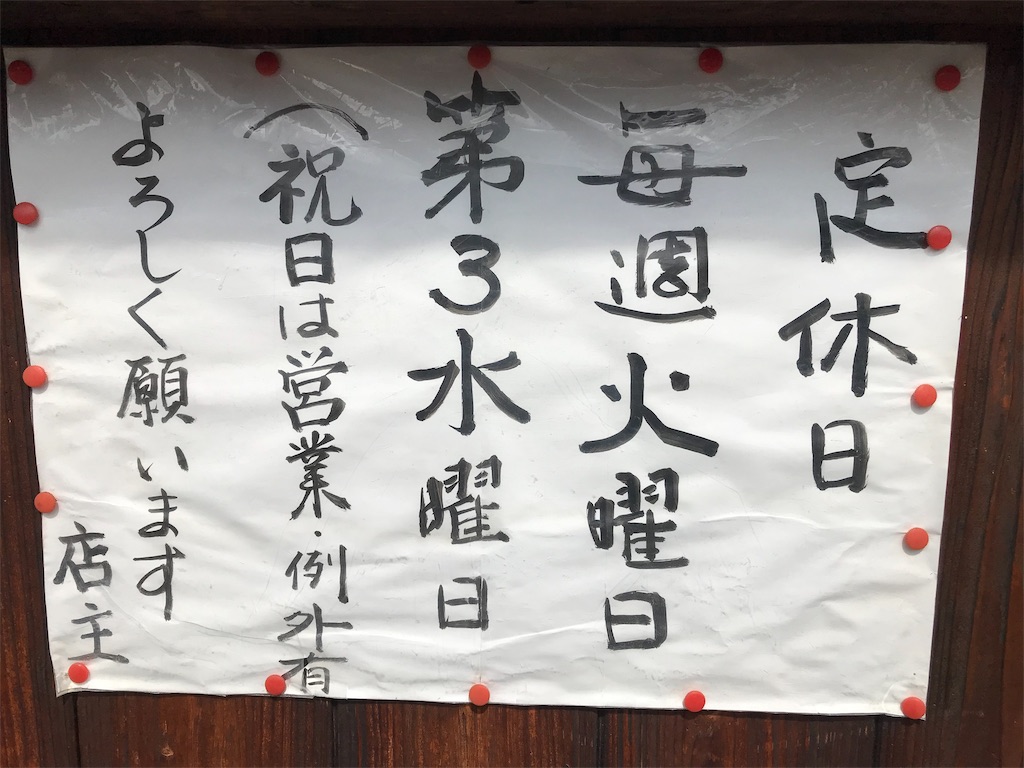 定休日
毎週火曜日
第3水曜日
(祝日は営業・例外有
よろしく願います
店主